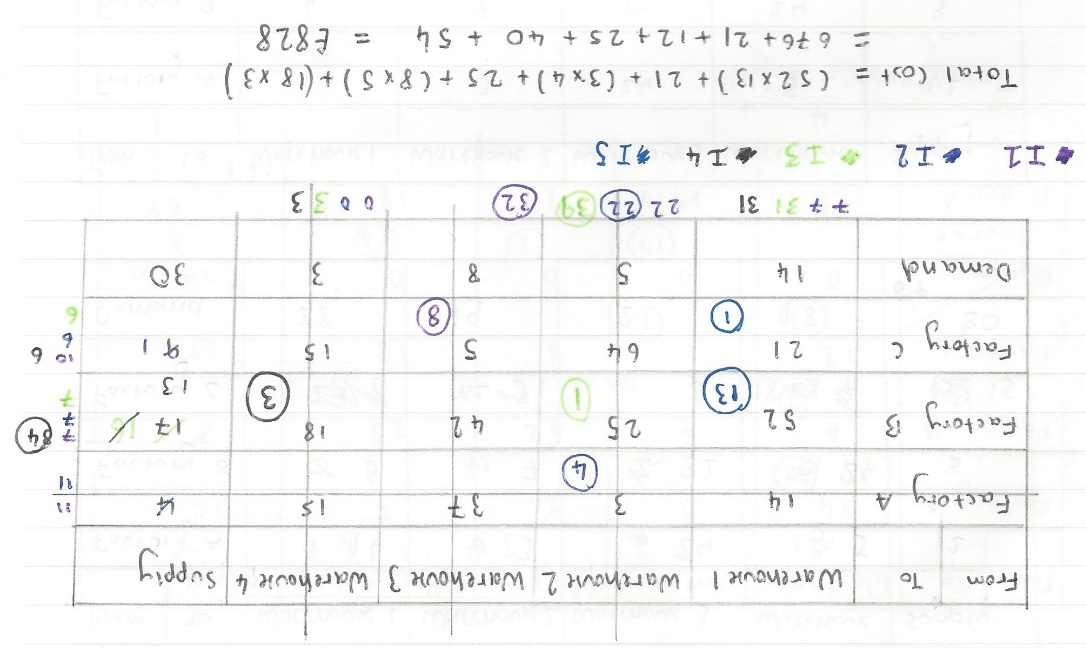 From To Warehouse 1 Warehouse 2 Warehouse 3 Warehouse 4 Supply
Factory A 14 3 37 15 4 11
4 11
Factory B 52 25 42 18 17 16 7
13 1 3 13 7 7
Factory C 21 64 5 15 9 1 10 6
1 8 6 6
Demand 14 5 8 3 30
7 7 31 31 22 22 39 32 0 0 3 3
* I1 * I2 * I3 * I4 * I5
Total Cost = (52 x 13) + 21 + (3 x 4) + 25 + (8 x 5) + (18 x 3)
= 676 + 21 + 12 + 25 + 40 + 54 = £828